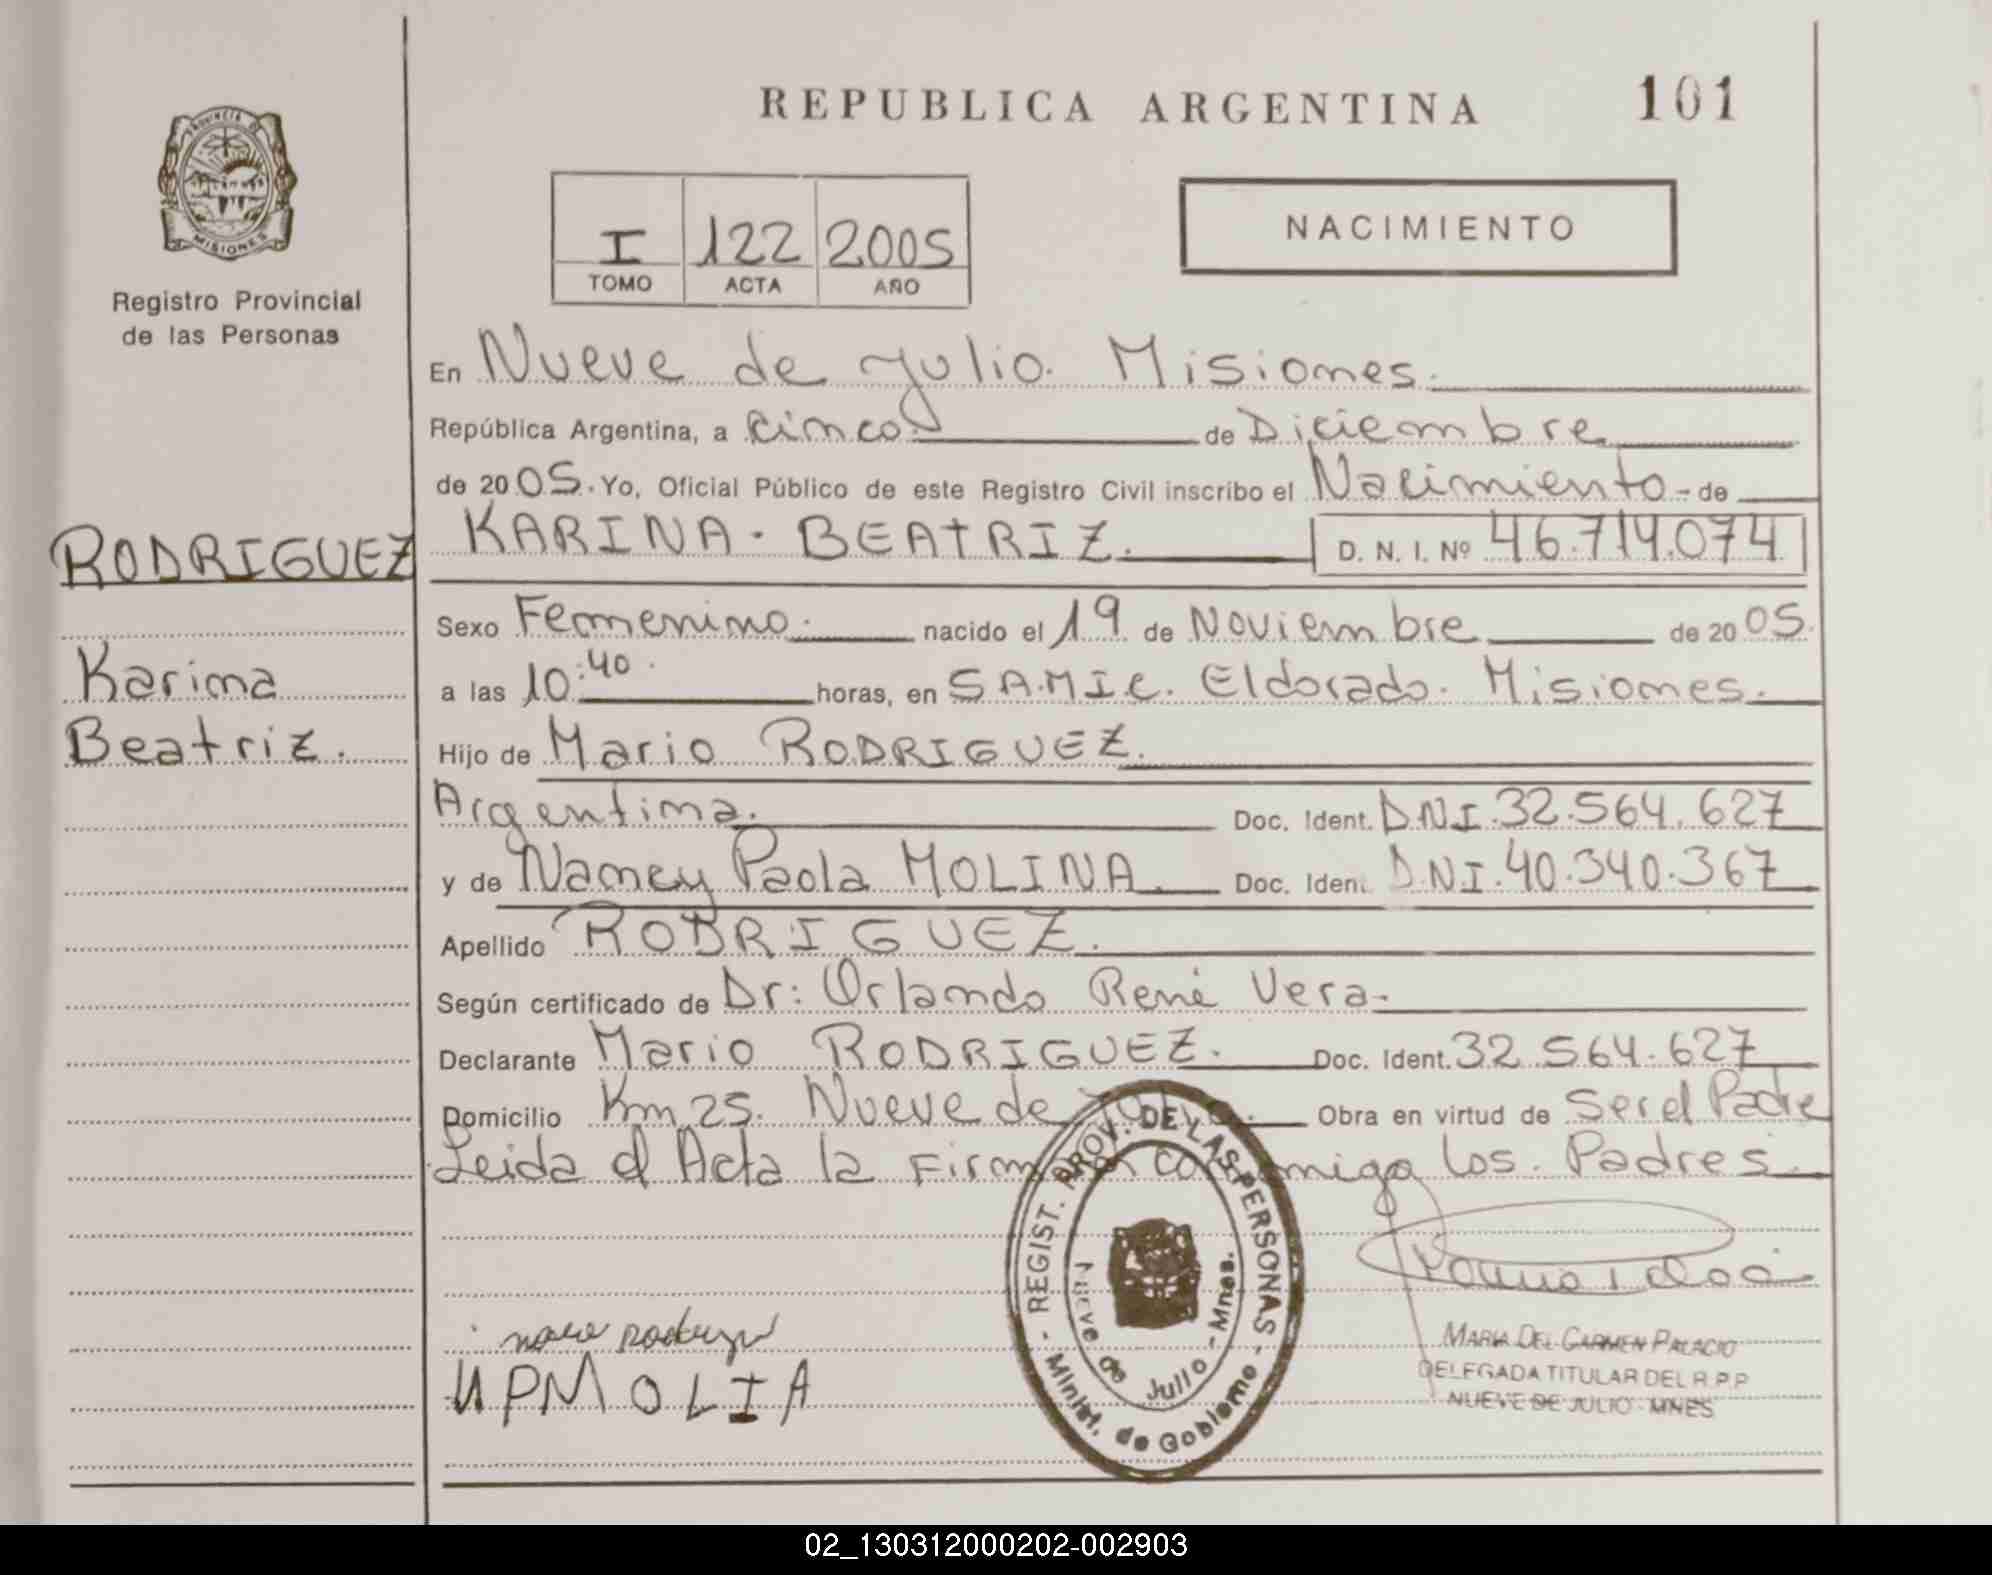 REPUBLICA ARGENTINA 101
PROVINCIA DE
MISIONES
Registro Provincial
de las Personas
I 122 2005
TOMO ACTA AÑO
NACIMIENTO
En Nueve de Julio. Misiones.
República Argentina, a cinco. de Diciembre
de 2005. Yo, Oficial Público de este Registro Civil inscribo el Nacimiento - de
RODRIGUEZ KARINA - BEATRIZ. D. N. I. Nº 46.714.074
Sexo Femenino. nacido el 19 de Noviembre de 2005.
Karina
a las 10:40. horas, en S.A.M.I.C. Eldorado. Misiones.
Beatriz.
Hijo de Mario RODRIGUEZ.
Argentina. Doc. Ident. DNI.32.564.627
y de Nancy Paola MOLINA. Doc. Ident. DNI.40.340.367
Apellido RODRIGUEZ.
Según certificado de Dr: Orlando René Vera.
Declarante Mario RODRIGUEZ. Doc. Ident. 32.564.627
Domicilio Km 25. Nueve de Julio. Obra en virtud de Ser el Padre
Leida el Acta la Firman con conmigo los. Padres.
REGIST. PROV. DE LAS PERSONAS
Nueve de Julio - Mnes.
- Minist. de Gobierno -
NPMOLIA
MARIA DEL CARMEN PALACIO
DELEGADA TITULAR DEL R.P.P
NUEVE DE JULIO - MNES
02_130312000202-002903